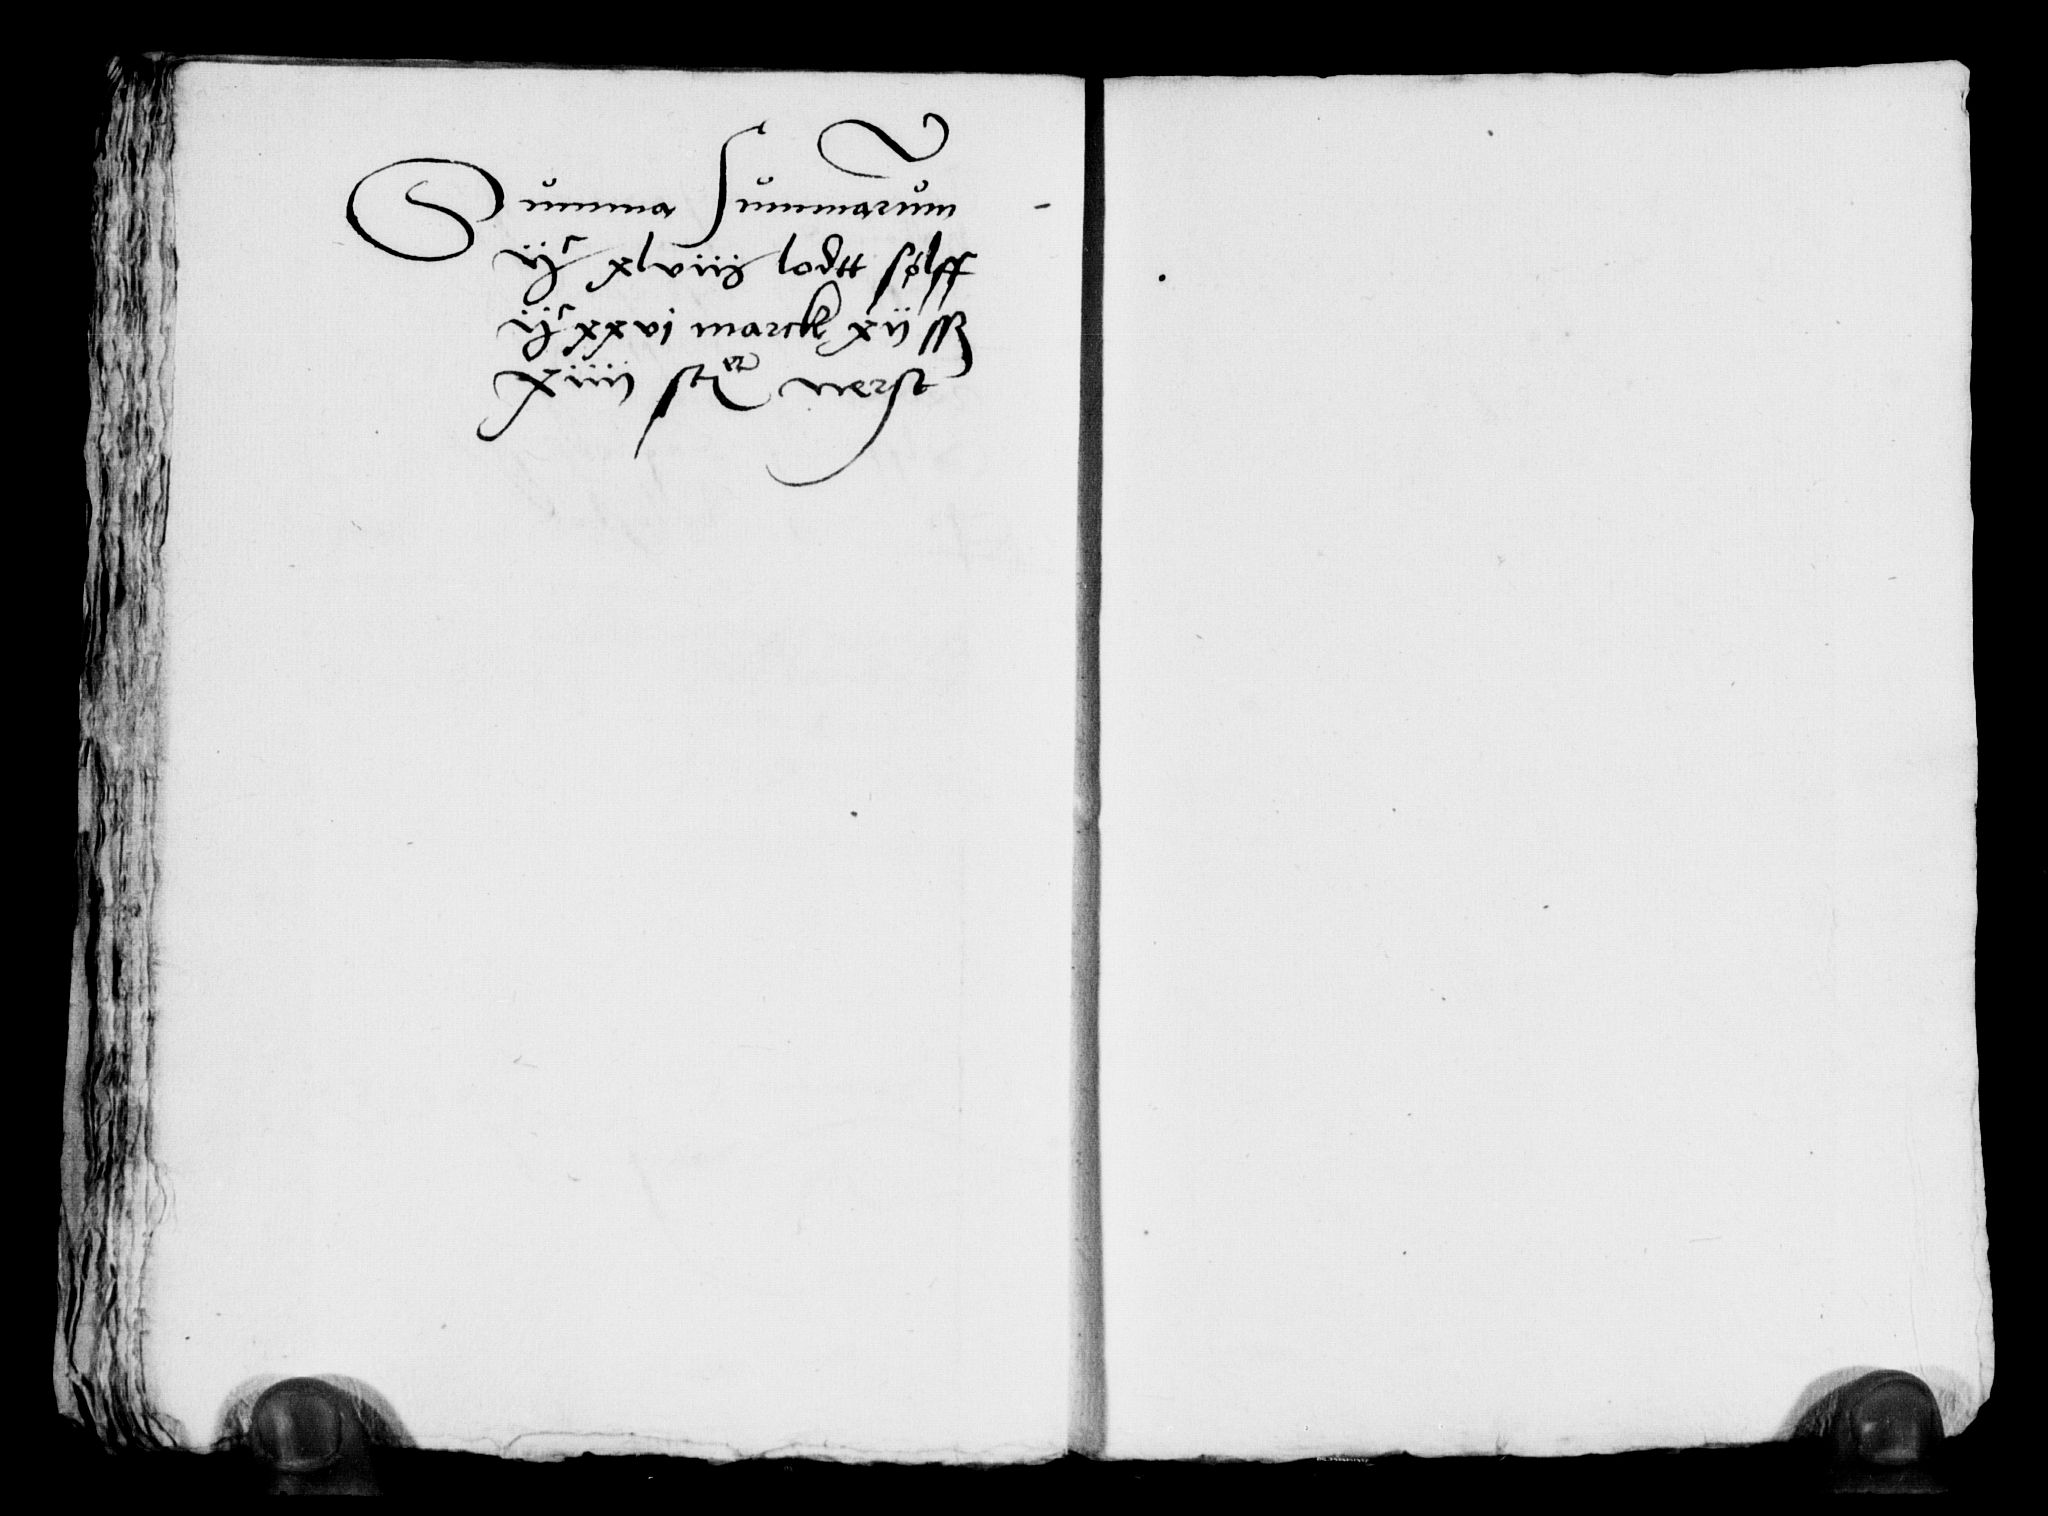 Summa Summarum
ijc xlviij lodtt sølff
ijc xxvi marck xij ß
xiiij stÿcker verst